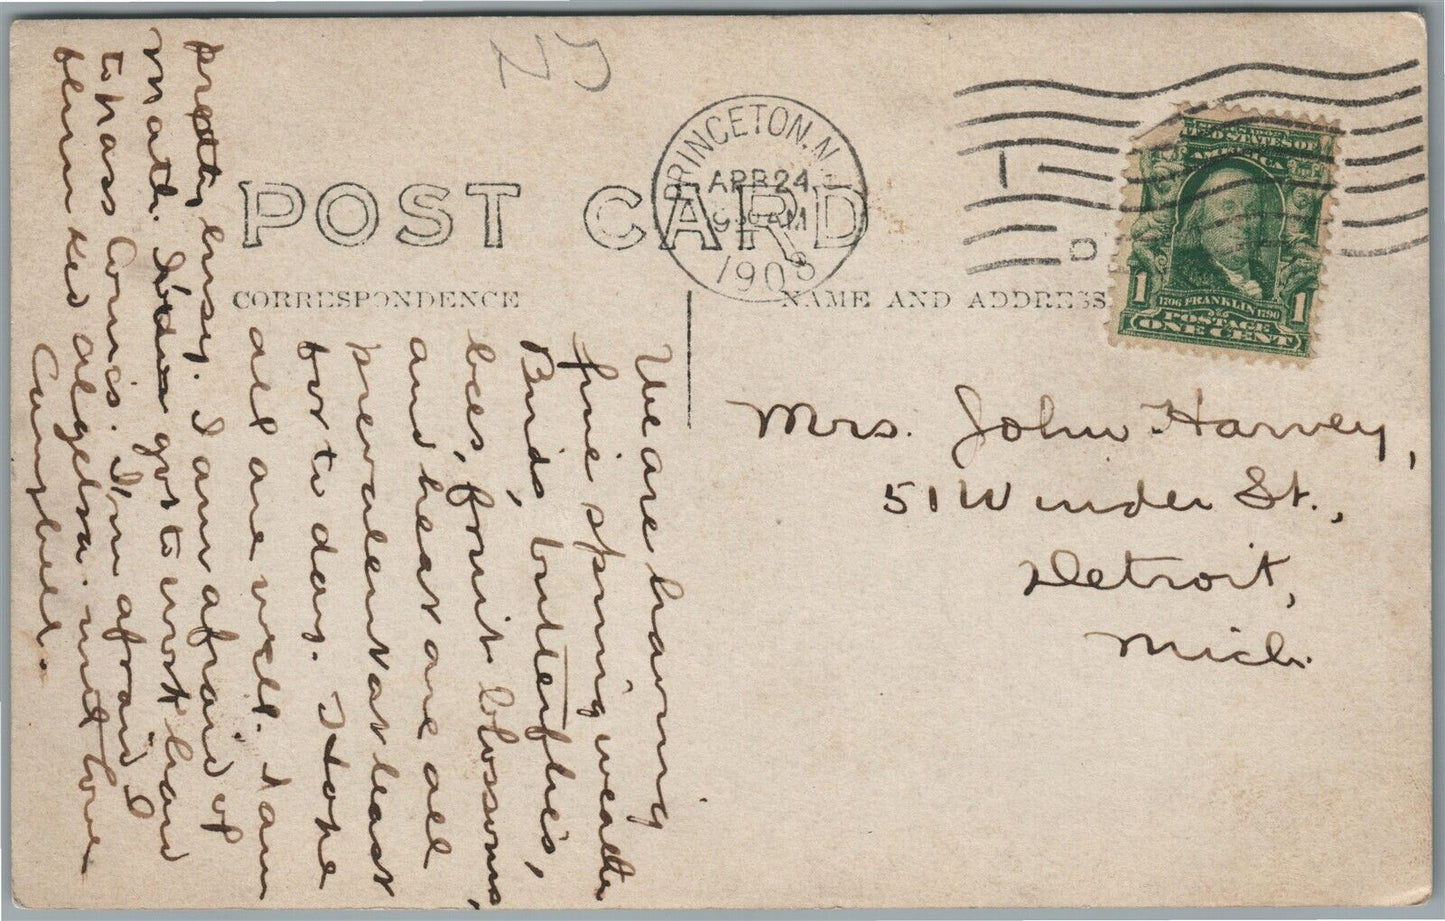 NJ
POST CARD
CORRESPONDENCE
NAME AND ADDRESS
PRINCETON, N.J.
APR 24
9 AM
1908
1
D
UNITED STATES OF
AMERICA
1 1
1706 FRANKLIN 1790
POSTAGE
ONE CENT
Mrs. John Harvey,
51 Winder St.,
Detroit,
Mich.
We are having
fine spring weather
Birds, butterflies,
bees, fruit blossoms,
and heat are all
prevalent at least
for to day. I hope
all are well. I am
pretty busy. I am afraid of
math. I've got to work hard
to pass Conics. I'm afraid I
flunked algebra. with love
Campbell.